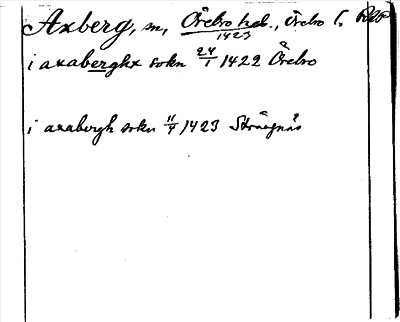 Axberg, sn, Örebro hd., Örebro l.
1423
i axaberghx sokn 24/1 1422 Örebro
i axabergh sokn 11/4 1423 Strängnäs